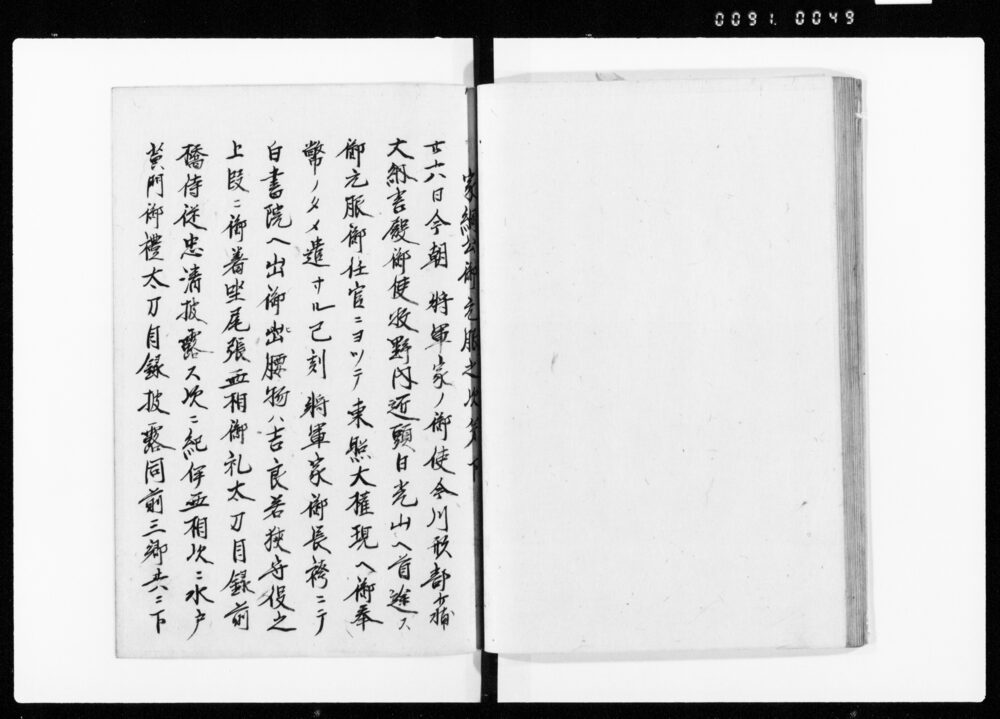 0091.0049
家綱公御元服之次第下
廿六日今朝 將軍家ノ御使今川刑部少輔
大納言殿御使牧野内匠頭日光山ヘ首途ス
御元服御任官ニヨツテ東照大權現ヘ御奉
幣ノタメ遣サル巳刻 將軍家御長袴ニテ
白書院ヘ出御御腰物ハ吉良若狭守役之
上段ニ御着座尾張亜相御礼太刀目録前
橋侍従忠清披露ス次ニ紀伊亜相次ニ水戸
黄門御禮太刀目録披露同前三卿共ニ下